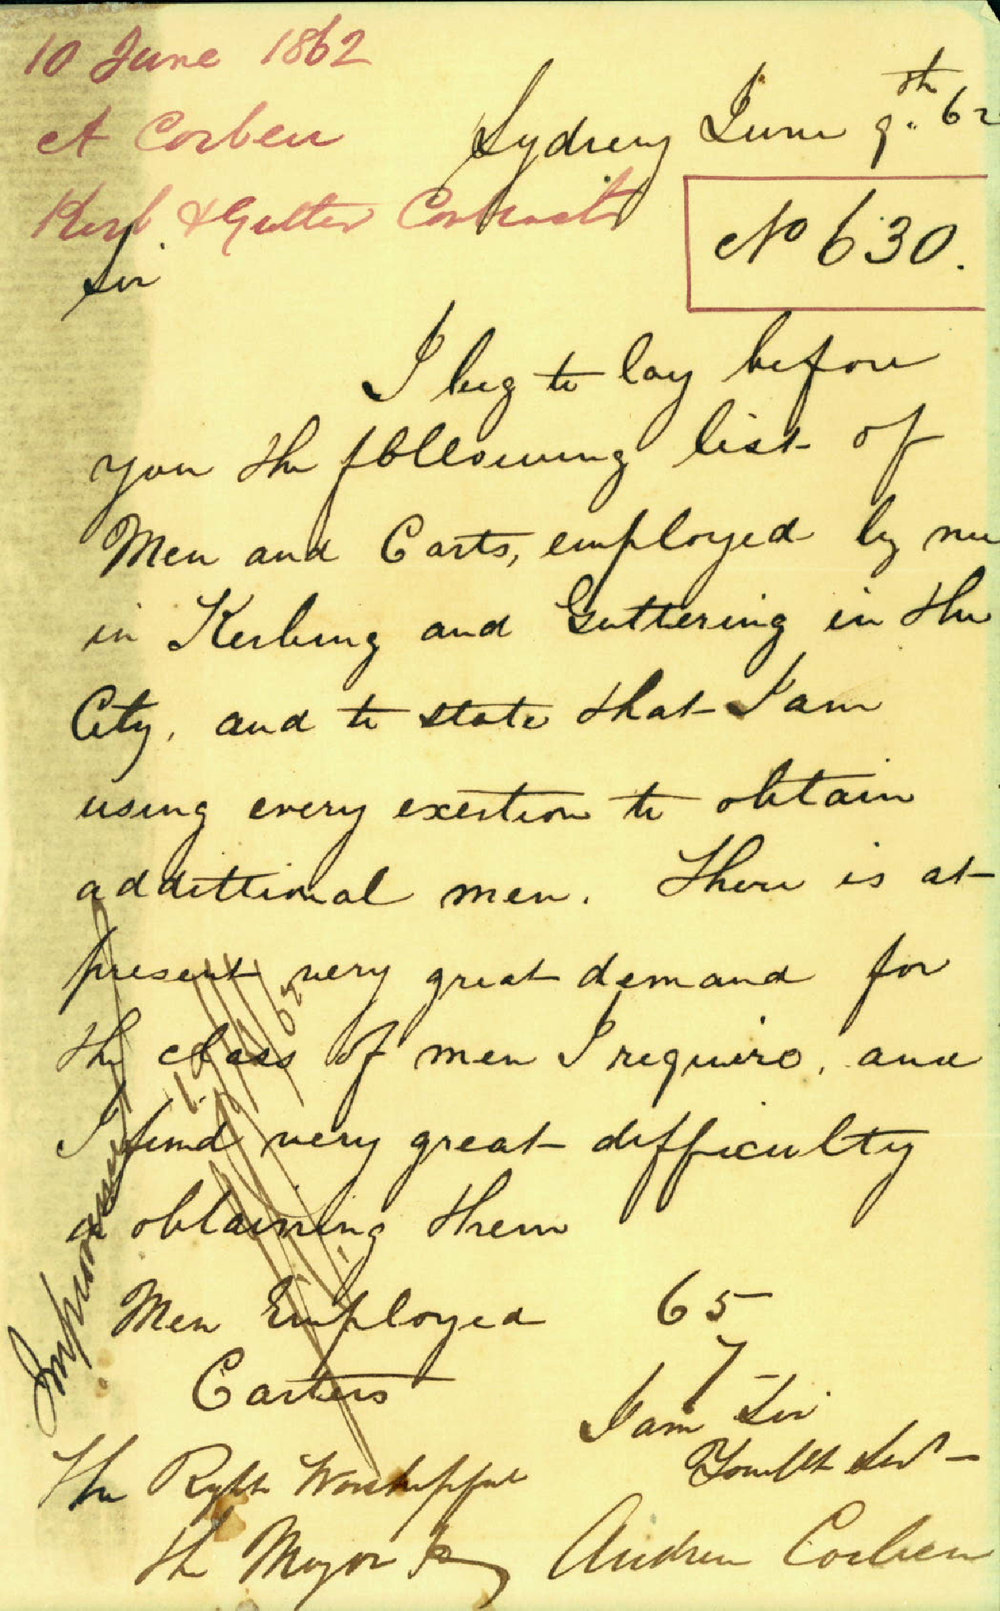 10 June 1862
A Corben
Kerb & Gutter Contracts
Sydney June 9.th 62
No 630.
Sir
I beg to lay before
you the following list of
Men and Carts, employed by me
in Kerbing and Guttering in the
City, and to state that I am
using every exertion to obtain
addittional men. There is at
present very great demand for
the class of men I require, and
I find very great difficulty
a obtaining them
Men Employed 65
Carters 7
I am Sir
The Right Worshipful
The Mayor
Andrew Corben